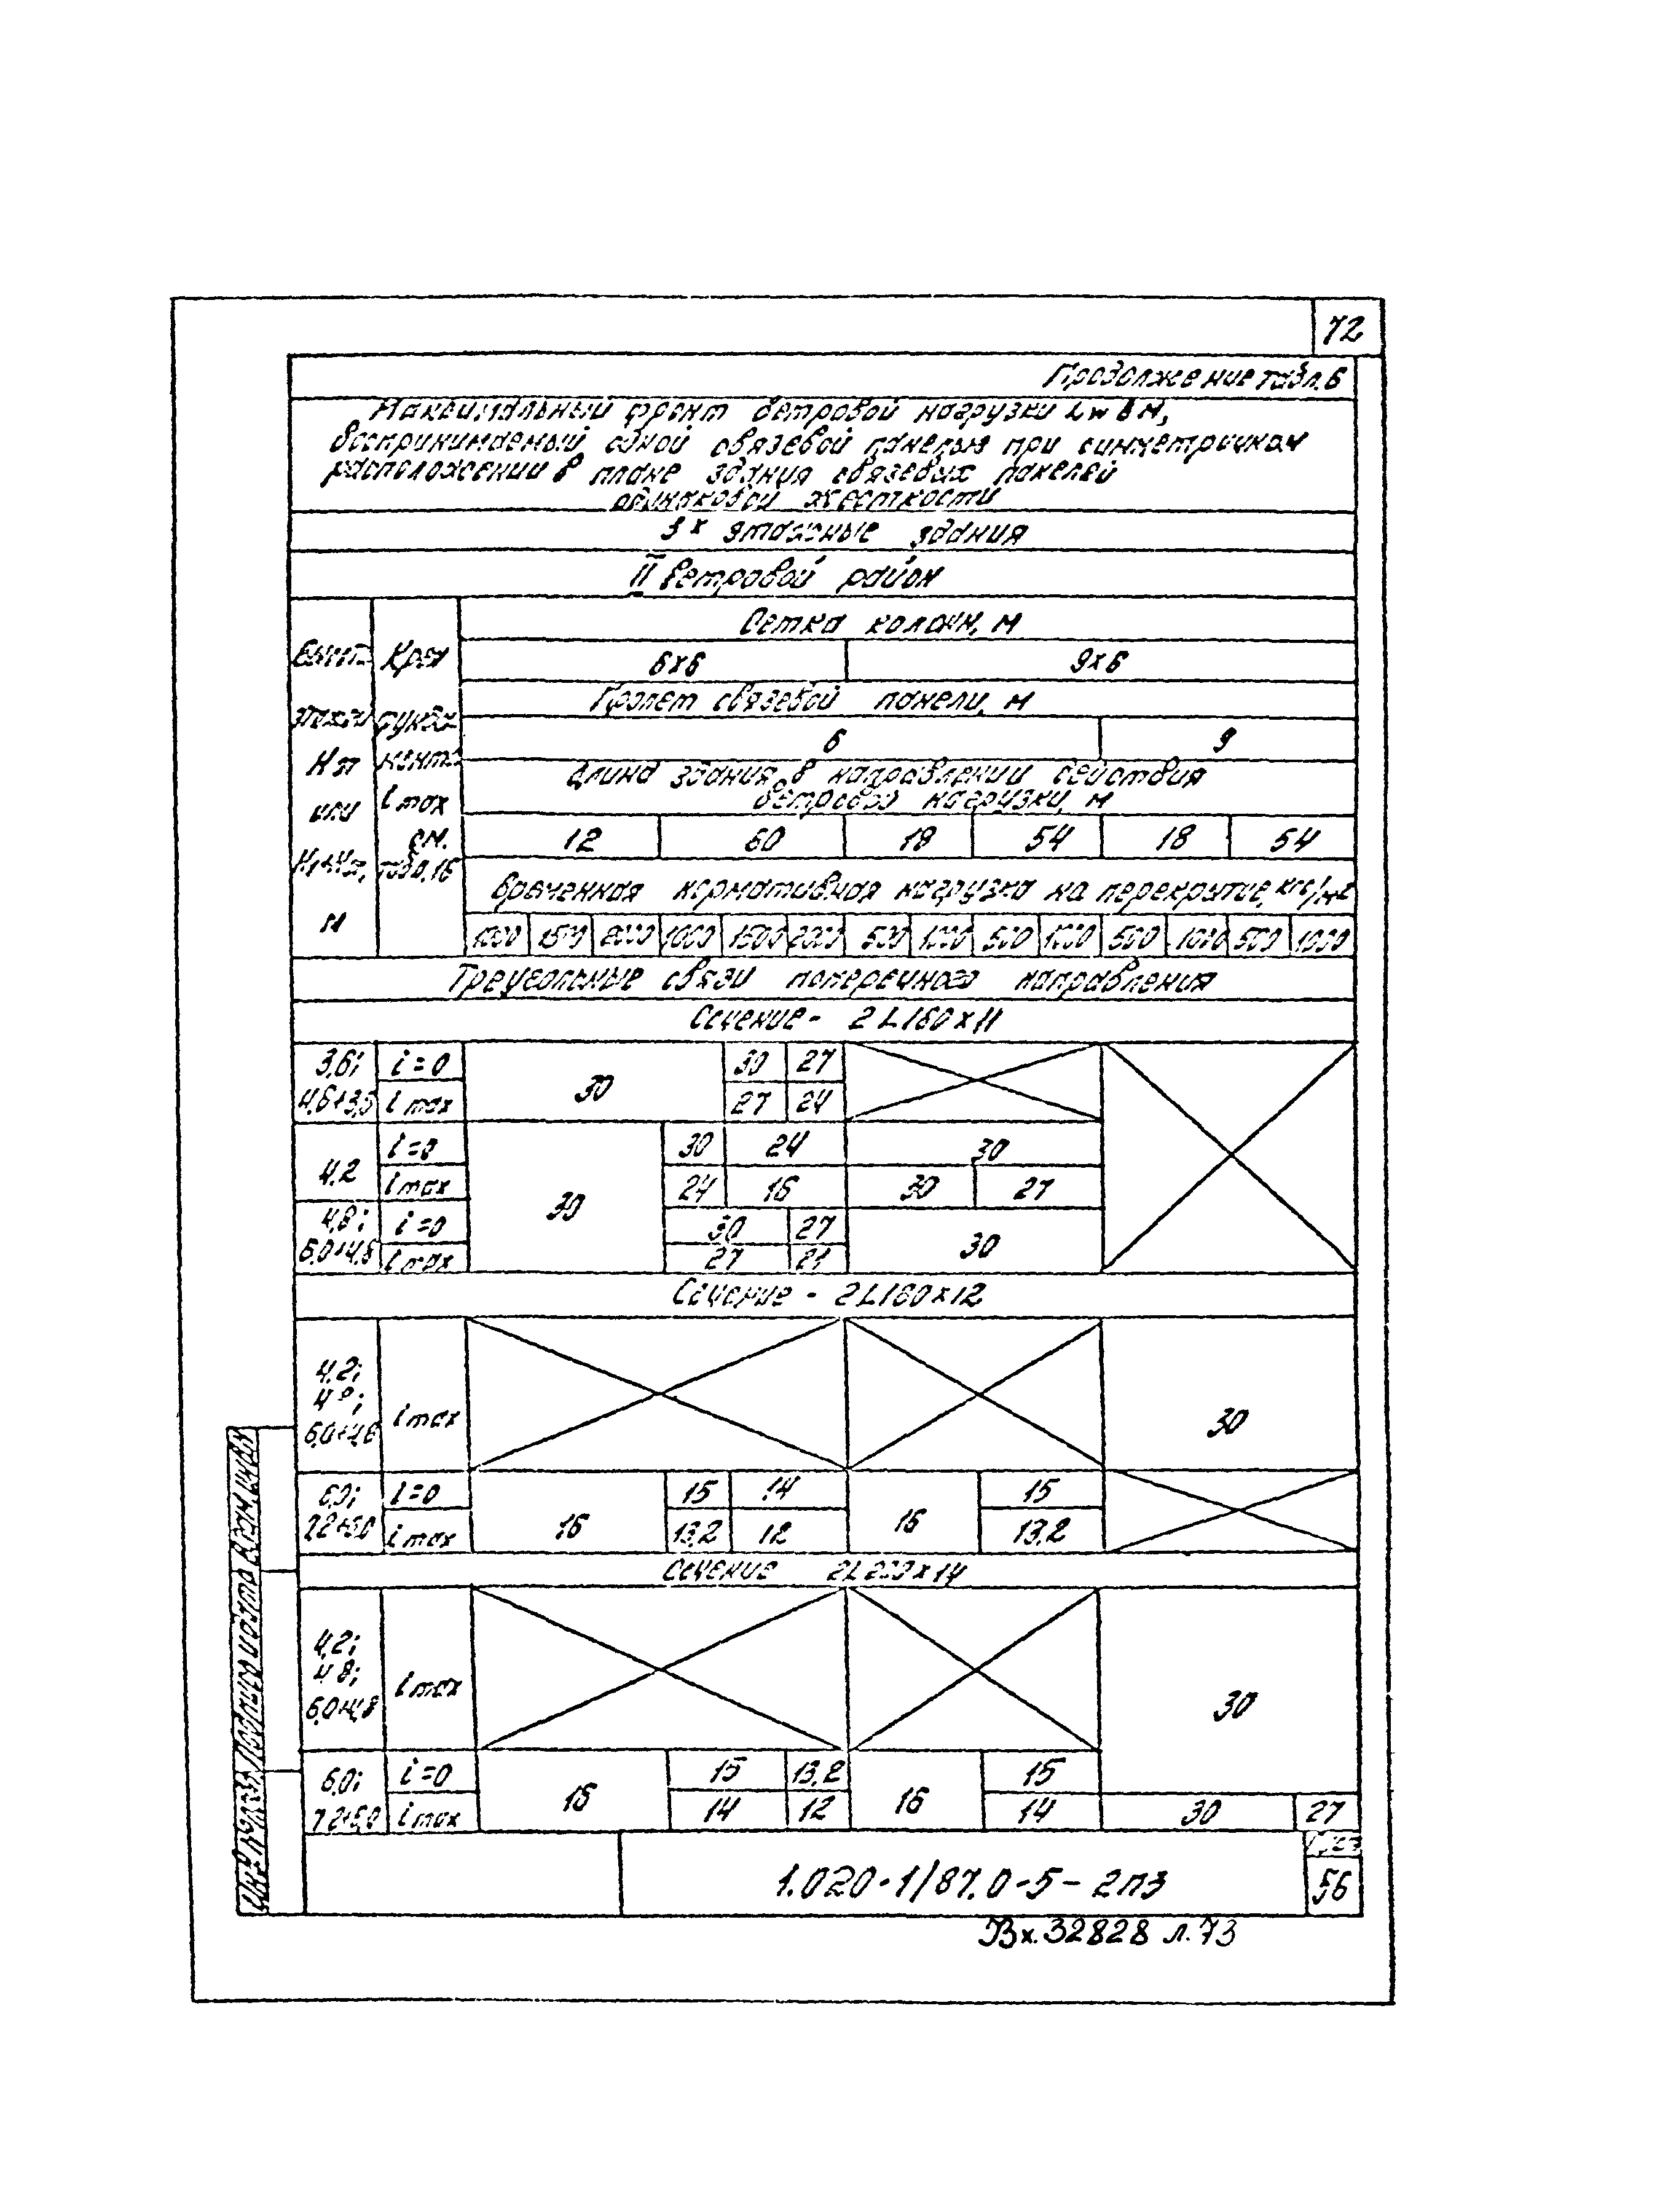 72
Продолжение табл. 6
Максимальный фронт ветровой нагрузки Lw в м,
воспринимаемый одной связевой панелью при симметричном
расположении в плане здания связевых панелей
одинаковой жесткости
3х этажные здания
II ветровой район
Сетка колонн, м
6х6 9х6
Пролет связевой панели, м
6 9
Длина здания в направлении действия
ветровой нагрузки, м
12 60 18 54 18 54
Временная нормативная нагрузка на перекрытие, кгс/м2
1000 1500 2000 1000 1500 2000 500 1000 500 1000 500 1000 500 1000
этажа
Нэт
или
м
Крен
фунда-
мента
imax
см.
табл. 16
Треугольные связи поперечного направления
Сечение - 2L160х11
3,6; i=0 30 27
30
imax 27 24
4.2 i=0 30 24 30
imax 24 16 30 27
30
4,8; i=0 30 27
30
6,0+4,8 imax 27 21
Сечение - 2L160х12
4,2;
4,8;
6,0+4,8 imax 30
6,0; i=0 15 14 15
16 16
7,2+6,0 imax 13,2 12 13,2
Сечение 2L200х14
4,2;
4,8;
6,0+4,8 imax 30
6,0; i=0 15 13,2 15
16
7,2+6,0 imax 14 12 14 30 27
1.020-1/87.0-5-2пз
Лист
56
Вх.32828 л.73